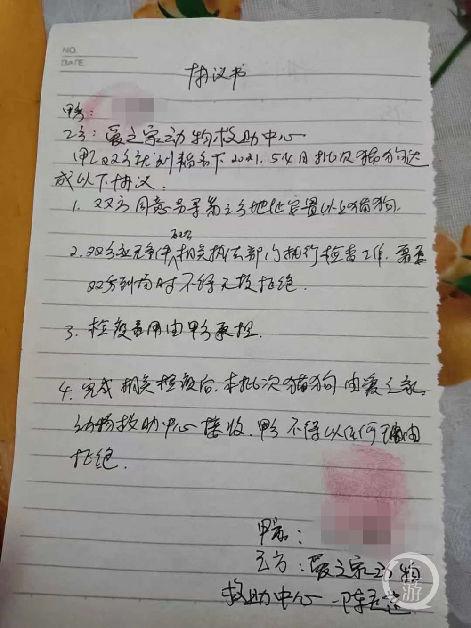 NO.
DATE
协议书
甲方：
乙方：爱之家动物救助中心
甲乙双方就 下2021.5.4日批次猫狗达
成以下协议.
1. 双方同意另寻第三方地址安置以上猫狗.
2. 双方应无条件配合相关执法部门执行检查工作，需要
双方到场时不得无故拒绝.
3. 检疫费用由甲方承担.
4. 完成相关检疫后，本批次猫狗由爱之家
动物救助中心接收，甲方不得以任何理由
拒绝.
甲方：
乙方：爱之家动物
救助中心 陈
游